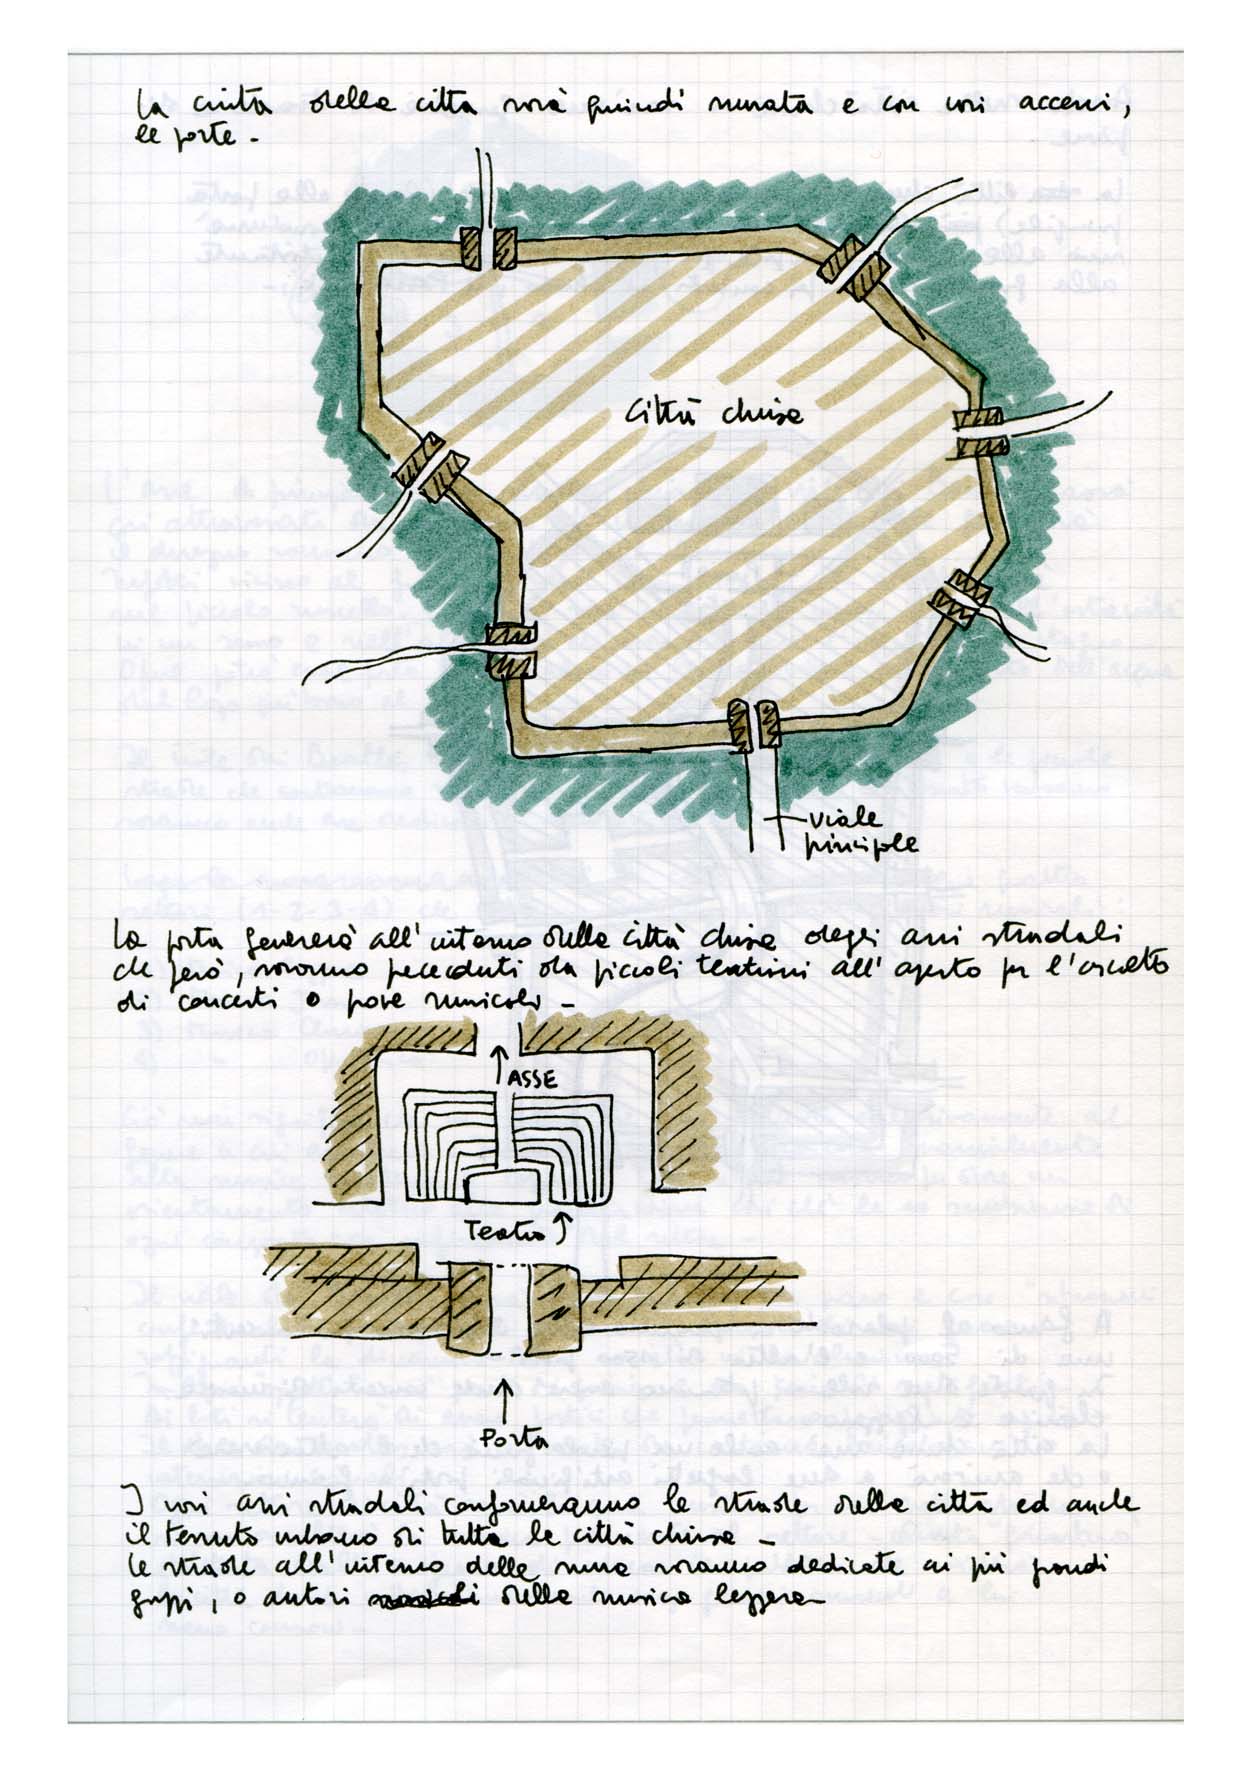 La cinta della città sarà quindi murata e con vari accessi,
le porte -
Città chiusa
viale
principale
La porta genererà all'interno della città chiusa degli assi stradali
che però, saranno preceduti da piccoli teatrini all'aperto per l'ascolto
di concerti o prove musicali -
ASSE
Teatro
Porta
I vari assi stradali conformeranno le strade della città ed anche
il tessuto urbano di tutta la città chiusa -
Le strade all'interno delle mura saranno dedicate ai più grandi
gruppi, o autori della musica leggera -